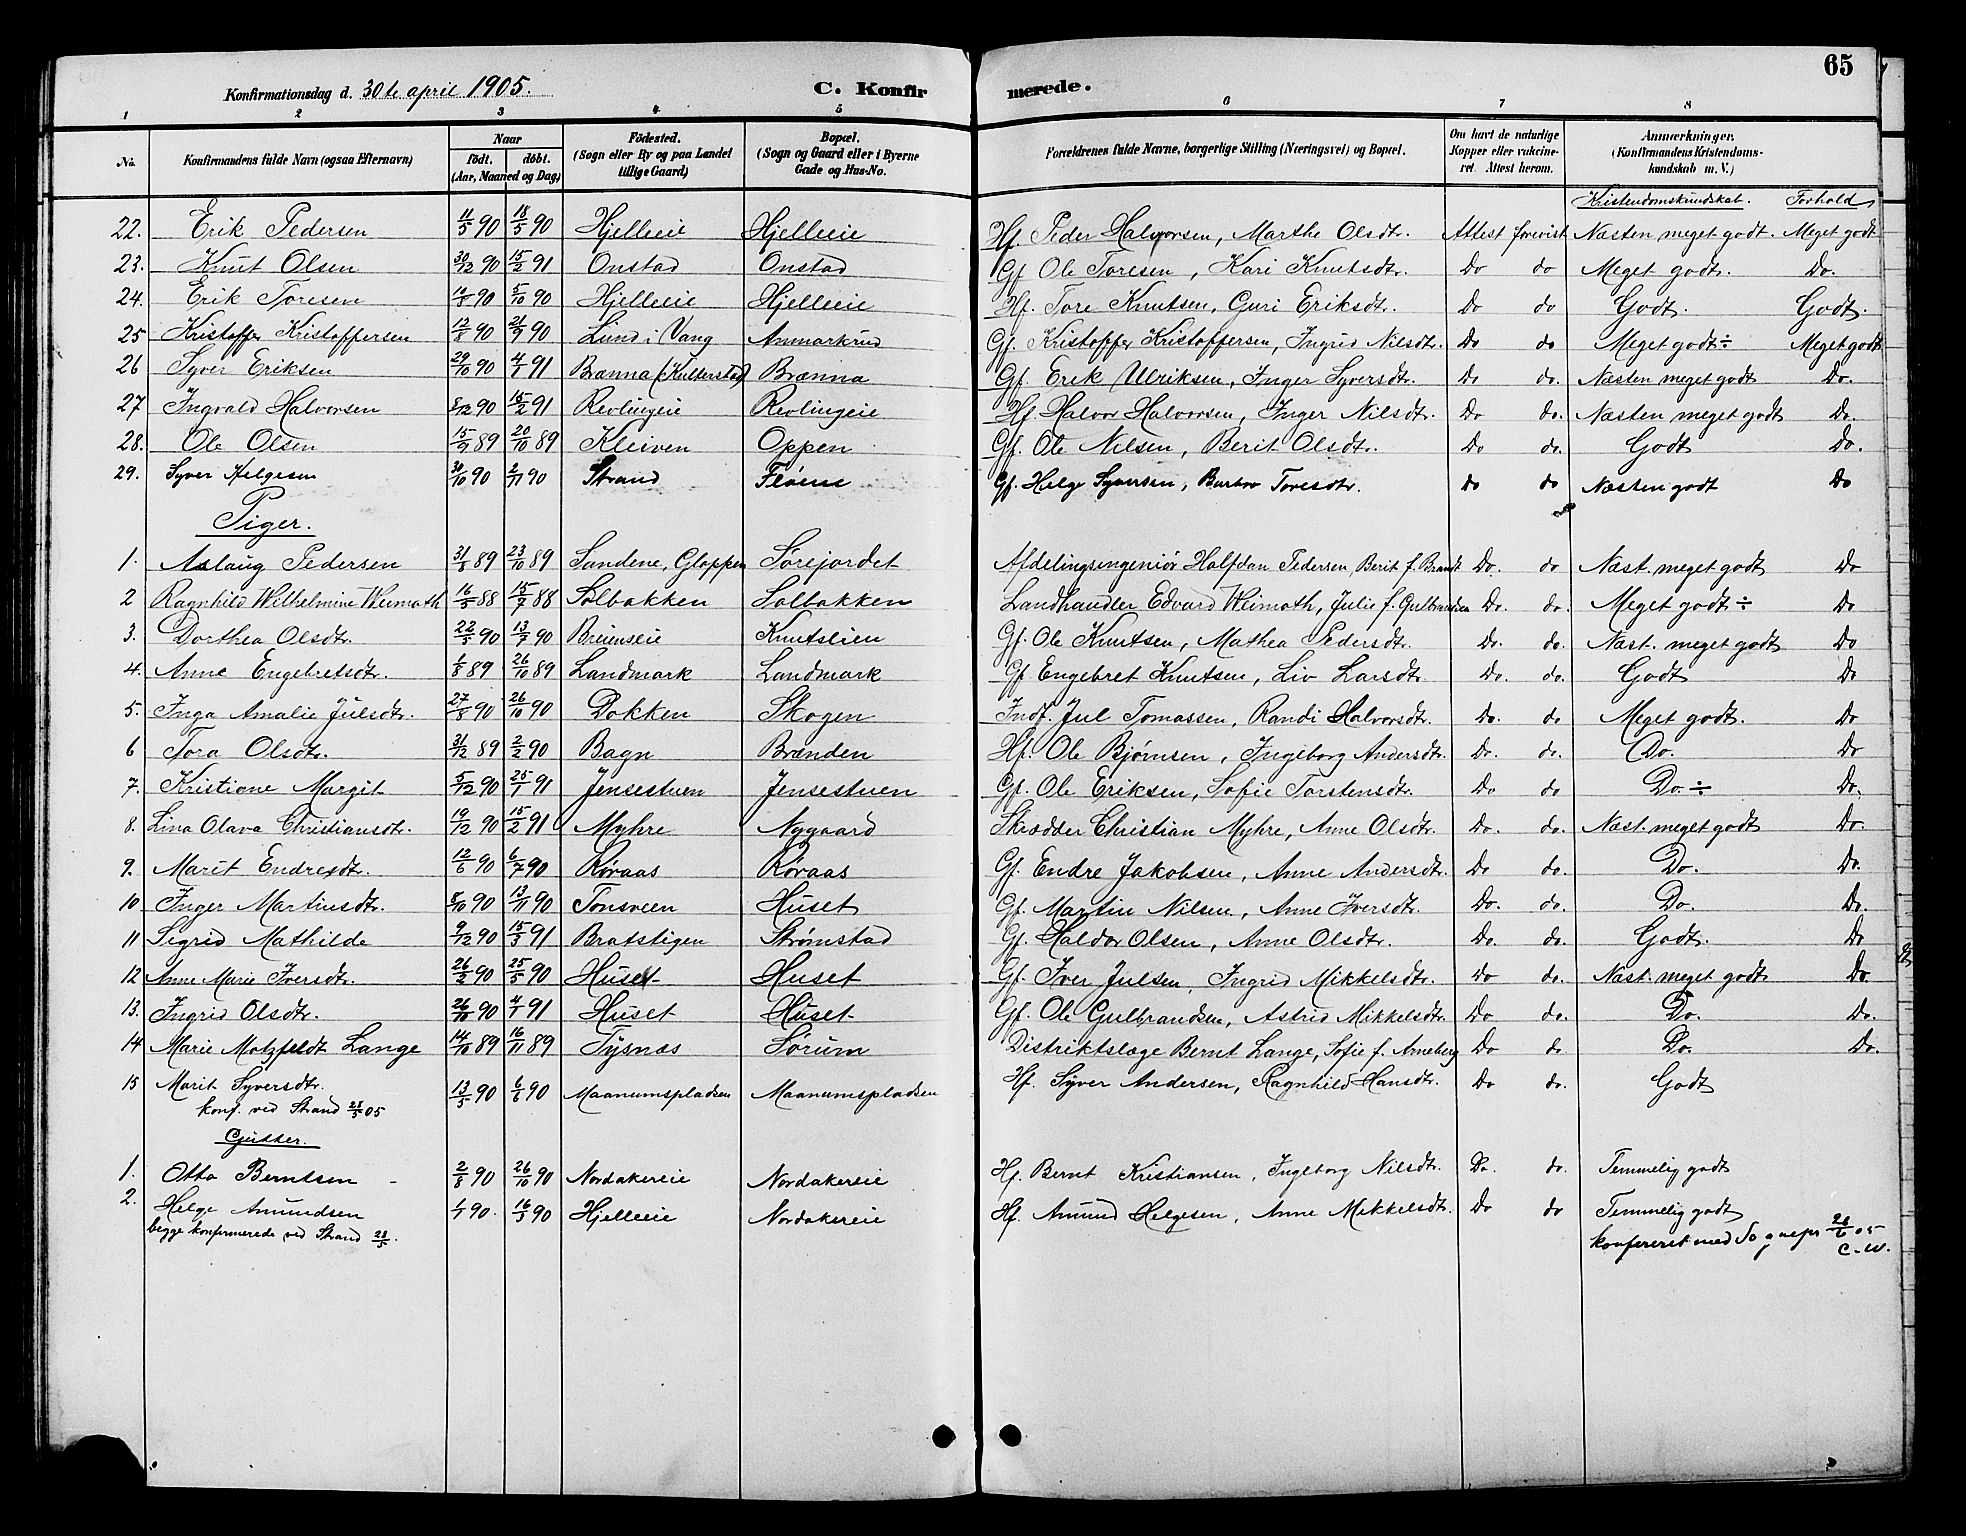 65
Konfirmationsdag d. 30te april 1905. C. Konfirmerede.
1 2 3 4 5 6 7 8
No. Konfirmandens fulde Navn (ogsaa Efternavn) Naar födt. döbt. (Aar, Maaned og Dag) Födested. (Sogn eller By og paa Landet tillige Gaard) Bopæl. (Sogn og Gaard eller i Byerne Gade og Hus-No. Forældrenes fulde Navne, borgerlige Stilling (Næringsvei) og Bopæl. Om havt de naturlige Kopper eller vakcineret. Attest herom. Anmærkninger. (Konfirmandens Kristendomskundskab m. V.)
Kristendomskundskab. Forhold
22. Erik Pedersen 11/5 90 18/5 90 Hjelleeie Hjelleeie Hf. Peder Halvorsen, Marthe Olsdtr. Attest forevist Næsten meget godt. Meget godt
23. Knut Olsen 30/12 90 15/2 91 Onstad Onstad Gf Ole Toresen, Kari Knutsdtr. Do do Meget godt. Do.
24. Erik Toresen 90 5/10 90 Hjelleeie Hjelleeie Hf. Tore Knutsen, Guri Eriksdtr. Do do Godt. Godt.
25 Kristoffer Kristoffersen 12/8 90 21/9 90 Lund i Vang Anmarkrud Gf. Kristoffer Kristoffersen, Ingrid Nilsdtr. Do do Meget godt ÷ Meget godt
26 Syver Eriksen 29/10 90 4/1 91 Brænna (Kulterstad) Brænna Gf. Erik Ulriksen, Inger Syversdtr. Do do. Næsten meget godt Do.
27 Ingvald Halvorsen 8/12 90 15/2 91 Revlingeie Revlingeie Hf. Halvor Halvorsen, Inger Nilsdtr. Do do. Næsten meget godt Do.
28. Ole Olsen 15/9 89 20/10 89 Kleiven Oppen Gf. Ole Nilsen, Berit Olsdtr. Do do. Godt Do.
29. Syver Helgesen 30/10 90 2/11 90 Strand Fløene Gf. Helge Syversen, Barbro Toresdtr. do do Næsten godt Do
Piger.
1. Aslaug Pedersen 31/8 89 23/10 89 Sandene, Gloppen Sørejordet Afdelingsingeniør Halfdan Pedersen, Berit f. Brandt Do. do Næst. meget godt Do
2 Ragnhild Wilhelmine Weimoth 16/5 88 15/7 88 Solbakken Solbakken Landhandler Edvard Weimoth, Julie f. Gulbrandsen Do. do. Meget godt ÷ Do
3. Dorthea Olsdtr. 22/5 90 13/7 90 Breienseie Knutslien Gf. Ole Knutsen, Mathea Pedersdtr. Do. do. Næst. meget godt Do
4. Anne Engebretsdtr. 6/8 89 26/10 89 Landmark Landmark Gf Engebret Knutsen, Liv Larsdtr. Do. do. Godt Do
5. Inga Amalie Julsdtr. 27/8 90 26/10 90 Dokken Skogen Indf. Jul Tomassen, Randi Halvorsdtr. Do. do Meget godt. Do
6 Tora Olsdtr. 31/12 89 2/2 90 Bagn Brænden Hf. Ole Bjørnsen, Ingeborg Andersdtr. Do. do. Do. Do
7. Kristiane Margit 5/12 90 25/1 91 Jensestuen Jensestuen Gf. Ole Eriksen, Sofie Torstensdtr. Do do Do ÷ Do.
8. Lina Olava Christiansdtr. 19/12 90 15/2 91 Myhre Nygaard Skrædder Christian Myhre, Anne Olsdtr. Do. do. Næst. meget godt Do.
9. Marit Endresdtr. 12/6 90 6/7 90 Røraas Røraas Gf. Endre Jakobsen, Anne Andersdtr. Do do. Do. Do.
10 Inger Martinsdtr. 8/10 90 13/11 90 Tonsveen Huset Gf. Martin Nilsen, Anne Iversdtr. Do. do. Do. Do.
11 Sigrid Mathilde 9/12 90 15/3 91 Bratstigen Strømstad Gf. Haldor Olsen, Anne Olsdtr. Do. do. Godt. Do
12 Anne Marie Iversdtr. 26/2 90 25/5 90 Huset Huset Gf. Iver Julsen, Ingrid Mikkelsdtr. Do do. Næst. meget godt Do.
13. Ingrid Olsdtr. 26/10 90 4/1 91 Huset Huset Gf. Ole Gulbrandsen, Astrid Mikkelsdtr. Do do. Do. Do.
14 Marie Motzfeldt Lange 14/10 89 16/11 89 Tysnæs Sørum Distriktslæge Bernt Lange, Sofie f. Arneberg Do do Do. Do.
15 Marit Syversdtr. 13/5 90 90 Maanumspladsen Maanumspladsen Hf. Syver Andersen, Ragnhild Hansdtr. Do do. Godt
konf. ved Strand 28/5 05
Gutter.
1. Otto Berntsen 2/8 90 26/10 90 Nordakereie Nordakereie Hf. Bernt Kristiansen, Ingeborg Nilsdtr. Do. do. Temmelig godt
2. Helge Amundsen 1/1 90. 16/3 90 Hjelleeie Nordakereie Hf. Amund Helgesen, Anne Mikkelsdtr. Do do Temmelig godt
begge konfirmerede ved Strand 28/5. konfereret med Sognepr 28/6 05
C. W.